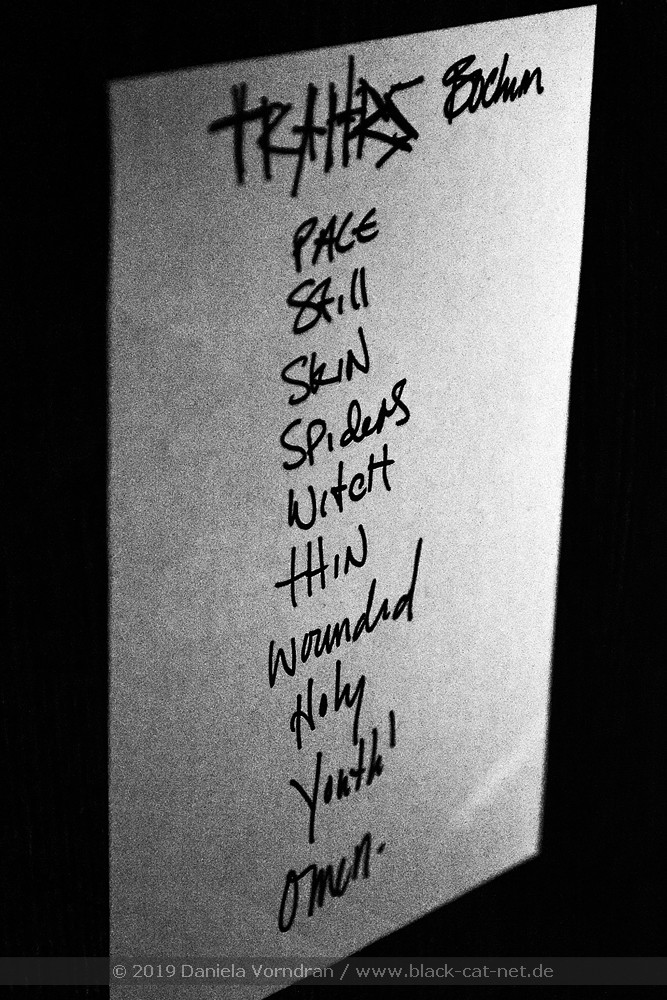 TRAITRS Bochum
PALE
Still
SkiN
SPiders
WitcH
tHiN
Wounded
Holy
Youth'
Omen.
© 2019 Daniela Vorndran / www.black-cat-net.de